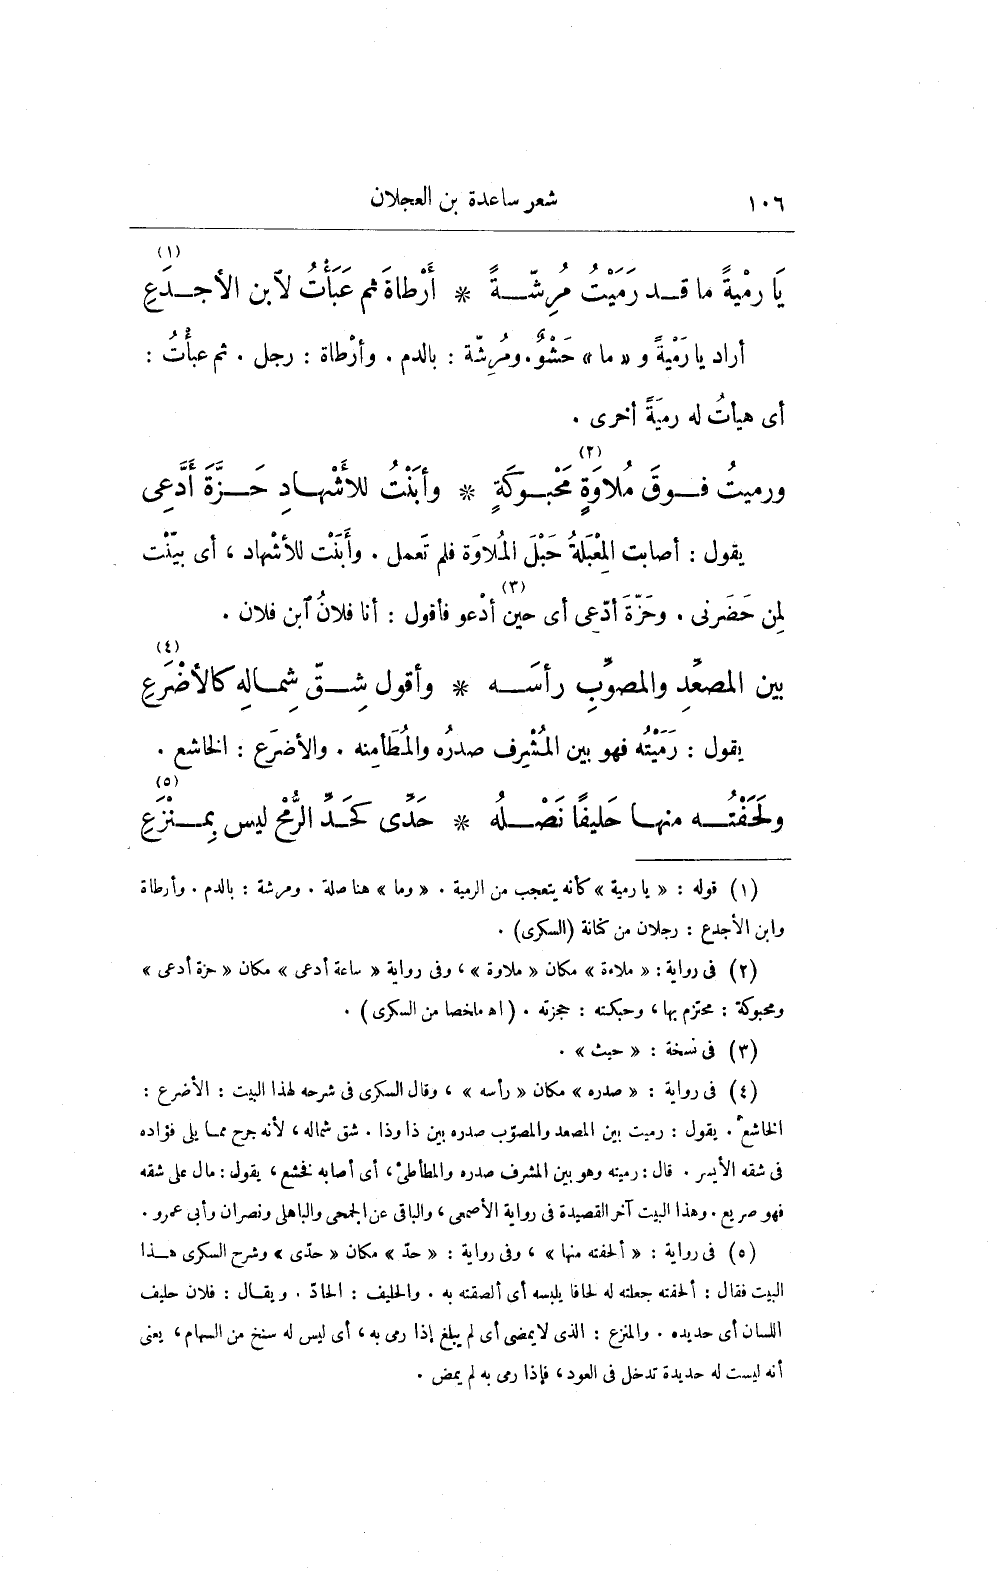 ١٠٦ شعر ساعدة بن العجلان
يَا رمْيةً ما قــد رَمَيْتُ مُرِشّــةً * أَرْطاةَ ثم عَبَأْتُ لاَبن الأجــدَعِ (١)
أراد يا رَمْيةً و « ما » حَشْوٌ. ومُرِشّة : بالدم . وأرْطاة : رجل . ثم عبأْتُ :
أى هيأتُ له رميَةً أخرى .
ورميتُ فــوقَ مُلاوَةٍ مَحْبـوكَةٍ (٢) * وأبَنْتُ للأَشْهـادِ حَــزَّةَ أَدَّعِى
يقول : أصابت المِعْبَلةُ حَبْلَ المُلاوَة فلم تَعمل . وأَبَنْت للأشْهاد ، أى بيّنْت
لمن حَضَرنى . وحَزّةَ أدّعِى أى حين (٣) أدْعو فأقول : أنا فلانُ ٱبن فلان .
بين المصعِّدِ والمصوِّبِ رأسَــه * وأقول شِــقّ شِمـالِه كالأضْرَعِ (٤)
يقول : رَمَيْتُه فهو بين المُشْرِف صدرُه والمُطَأمِنه . والأضرَع : الخاشع .
ولَحَفْتُــه منهـا حَليفًا نَصْــلُه * حَدِّى كَحَــدِّ الرُّمْح ليس بِمــنْزَعِ (٥)
(١) قوله : « يا رمية » كأنه يتعجب من الرمية . « وما » هنا صلة . ومرشة : بالدم . وأرطاة
وابن الأجدع : رجلان من كنانة (السكرى) .
(٢) فى رواية : « ملاءة » مكان « ملاوة » ، وفى رواية « ساعة أدعى » مكان « حزة أدعى »
ومحبوكة : محتزم بها ، وحبكته : حجزته . ( اه ملخصا من السكرى ) .
(٣) فى نسخة : « حيث » .
(٤) فى رواية : « صدره » مكان « رأسه » ، وقال السكرى فى شرحه لهذا البيت : الأضرع :
الخاشع . يقول : رميت بين المصعد والمصوّب صدره بين ذا وذا . شق شماله ، لأنه جرح ممـا يلى فؤاده
فى شقه الأيسر . قال : رميته وهو بين المشرف صدره والمطأطئ ، أى أصابه فخشع ، يقول : مال على شقه
فهو صريع . وهذا البيت آخر القصيدة فى رواية الأصمعى ، والباقى عن الجمحى والباهلى ونصران وأبى عمرو .
(٥) فى رواية : « ألحفته منها » ، وفى رواية : « حدّ » مكان « حدّى » وشرح السكرى هــذا
البيت فقال : ألحفته جعلته له لحافا يلبسه أى ألصقته به . والحليف : الحادّ . ويقــال : فلان حليف
اللسان أى حديده . والمنزع : الذى لا يمضى أى لم يبلغ إذا رمى به ، أى ليس له سنخ من السهام ، يعنى
أنه ليست له حديدة تدخل فى العود ، فإذا رمى به لم يمض .